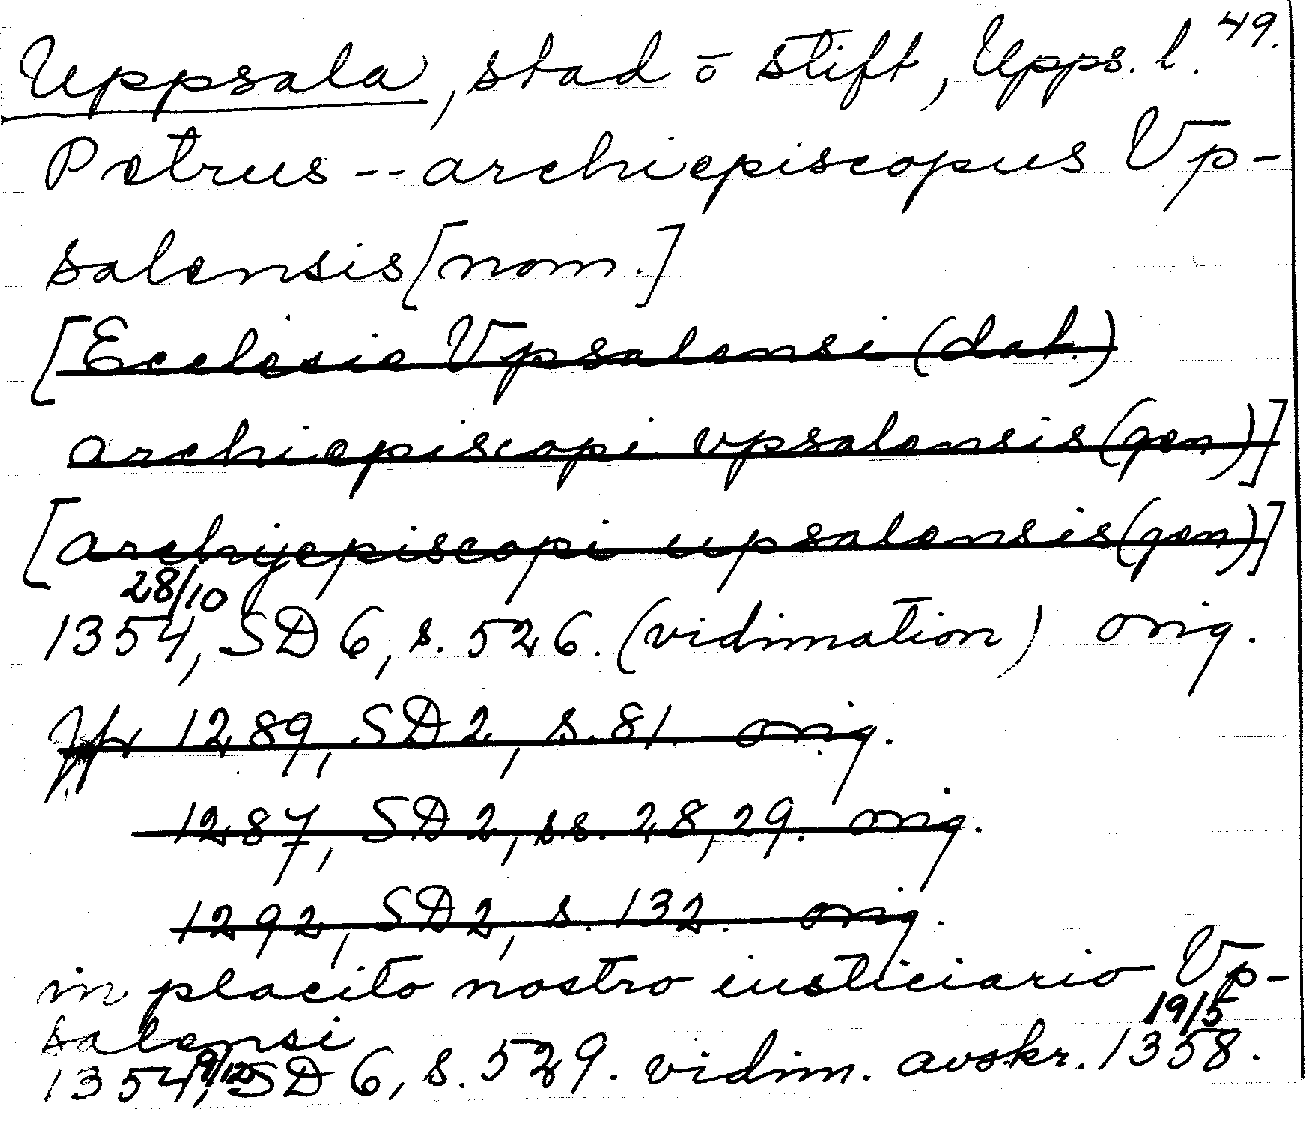 Uppsala, stad o stift, Upps. l. 49.
Petrus -- archiepiscopus Vp-
salensis [nom.]
[Ecclesie Vpsalensi (dat.)
archiepiscopi vpsalensis (gen)]
[archyepiscopi upsalensis (gen)]
28/10
1354, SD 6, s. 526. (vidimation) orig.
Jfr 1289, SD 2, s. 81. orig.
1287, SD 2, ss. 28, 29. orig.
1292, SD 2, s. 132. orig.
in placito nostro iusticiario Vp-
salensi 19/5
1354, SD 6, s. 529. vidim. avskr. 1358.